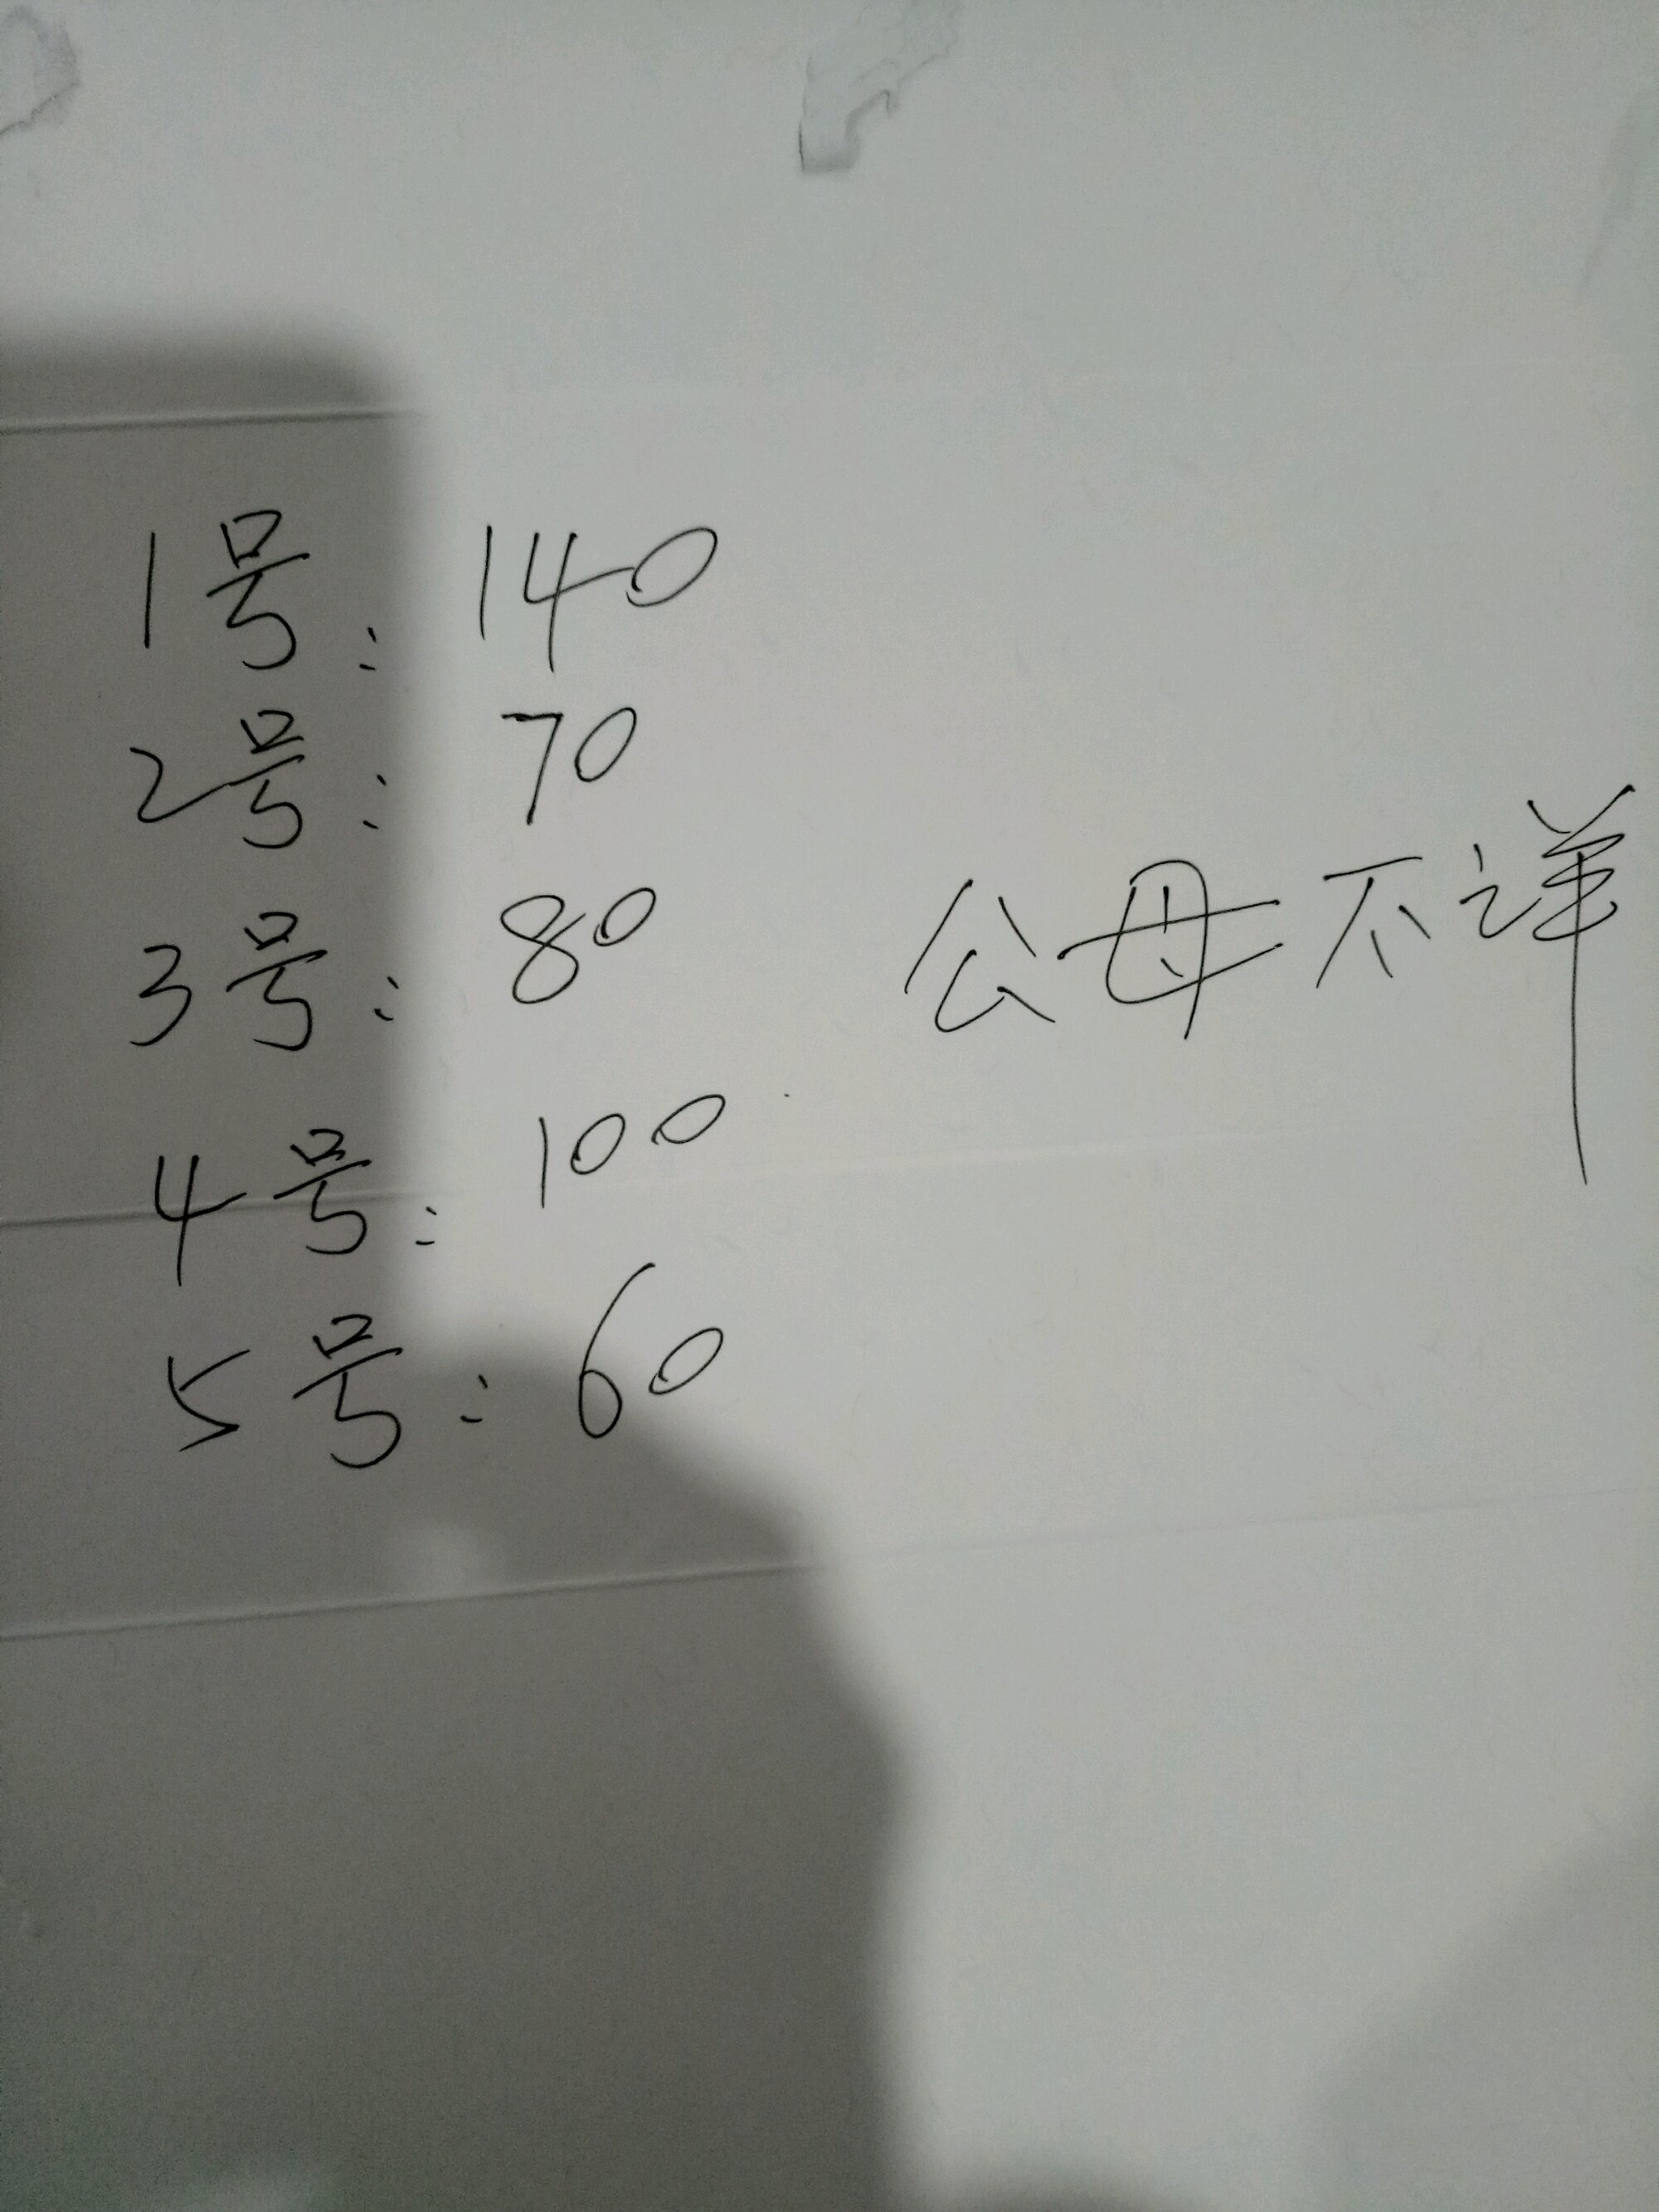 1号: 140
2号: 70
3号: 80 公母不详
4号: 100
5号: 60